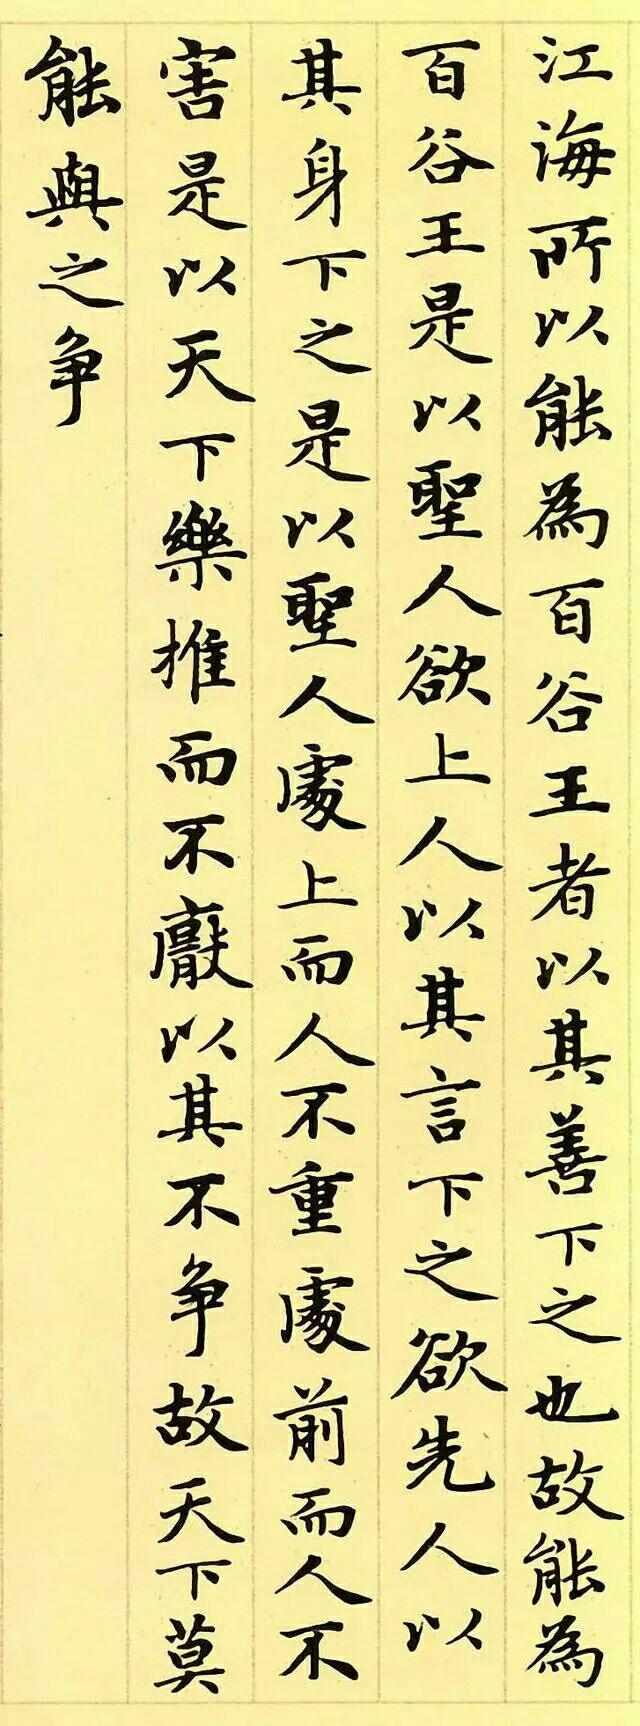 江海所以能為百谷王者以其善下之也故能為
百谷王是以聖人欲上人以其言下之欲先人以
其身下之是以聖人處上而人不重處前而人不
害是以天下樂推而不厭以其不争故天下莫
能與之争